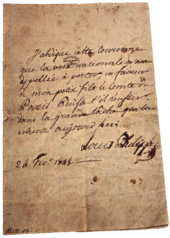 J'abdique cette Couronne
que la voix nationale m'avait
appellée à porter, en faveur
de mon petit fils le Comte de
Paris. Puisse t'il réussir
dans la grande tâche qui lui
échoit aujourd'hui.
Louis Philippe
24 Fevr. 1848